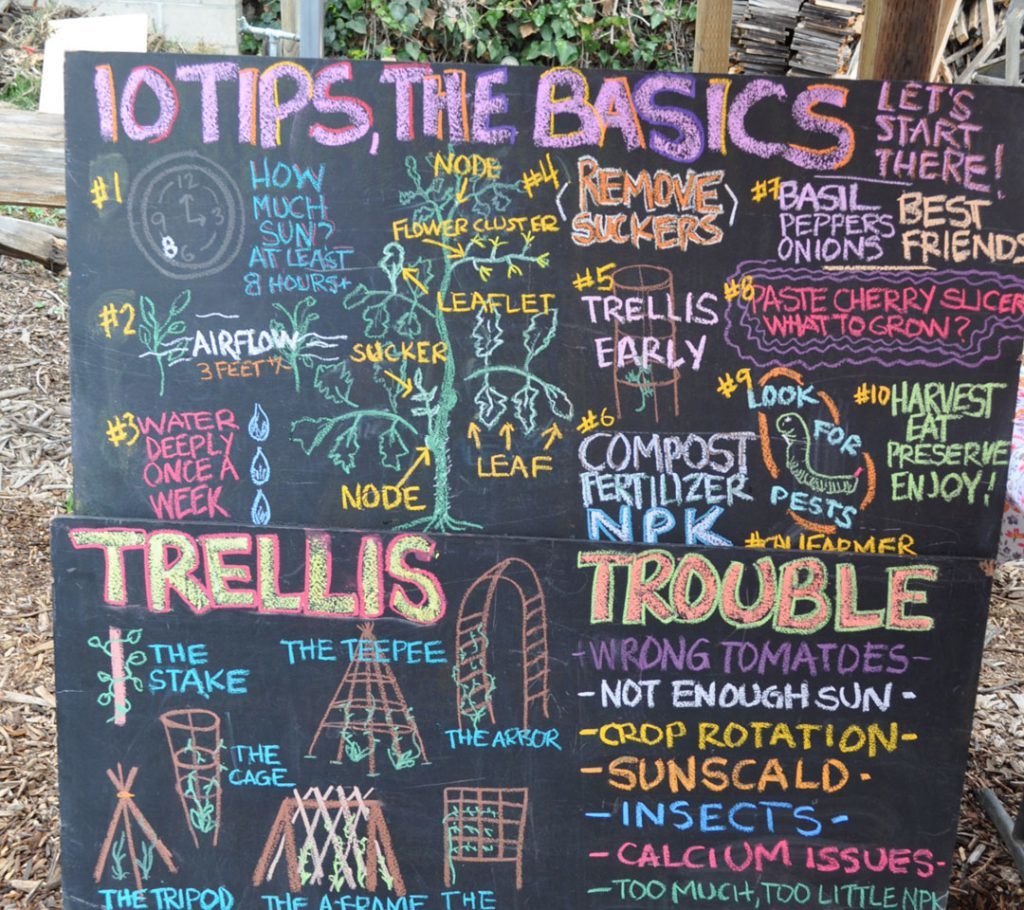 10 TIPS, THE BASICS
LET'S
START
THERE!
#1
12
3
6
9
8
HOW
MUCH
SUN?
AT LEAST
8 HOURS+
#2
AIRFLOW
3 FEET
#3 WATER
DEEPLY
ONCE A
WEEK
NODE
FLOWER CLUSTER
LEAFLET
SUCKER
LEAF
NODE
#4
REMOVE
SUCKERS
#5
TRELLIS
EARLY
#6
COMPOST
FERTILIZER
NPK
#7 BASIL
PEPPERS
ONIONS
BEST
FRIENDS
#8
PASTE CHERRY SLICER
WHAT TO GROW?
#9 LOOK
FOR
PESTS
#10 HARVEST
EAT
PRESERVE
ENJOY!
TRELLIS
THE
STAKE
THE TEEPEE
THE ARBOR
THE
CAGE
THE TRIPOD
THE A-FRAME
THE
TROUBLE
-WRONG TOMATOES-
-NOT ENOUGH SUN-
-CROP ROTATION-
-SUNSCALD-
-INSECTS-
-CALCIUM ISSUES-
-TOO MUCH, TOO LITTLE NPK